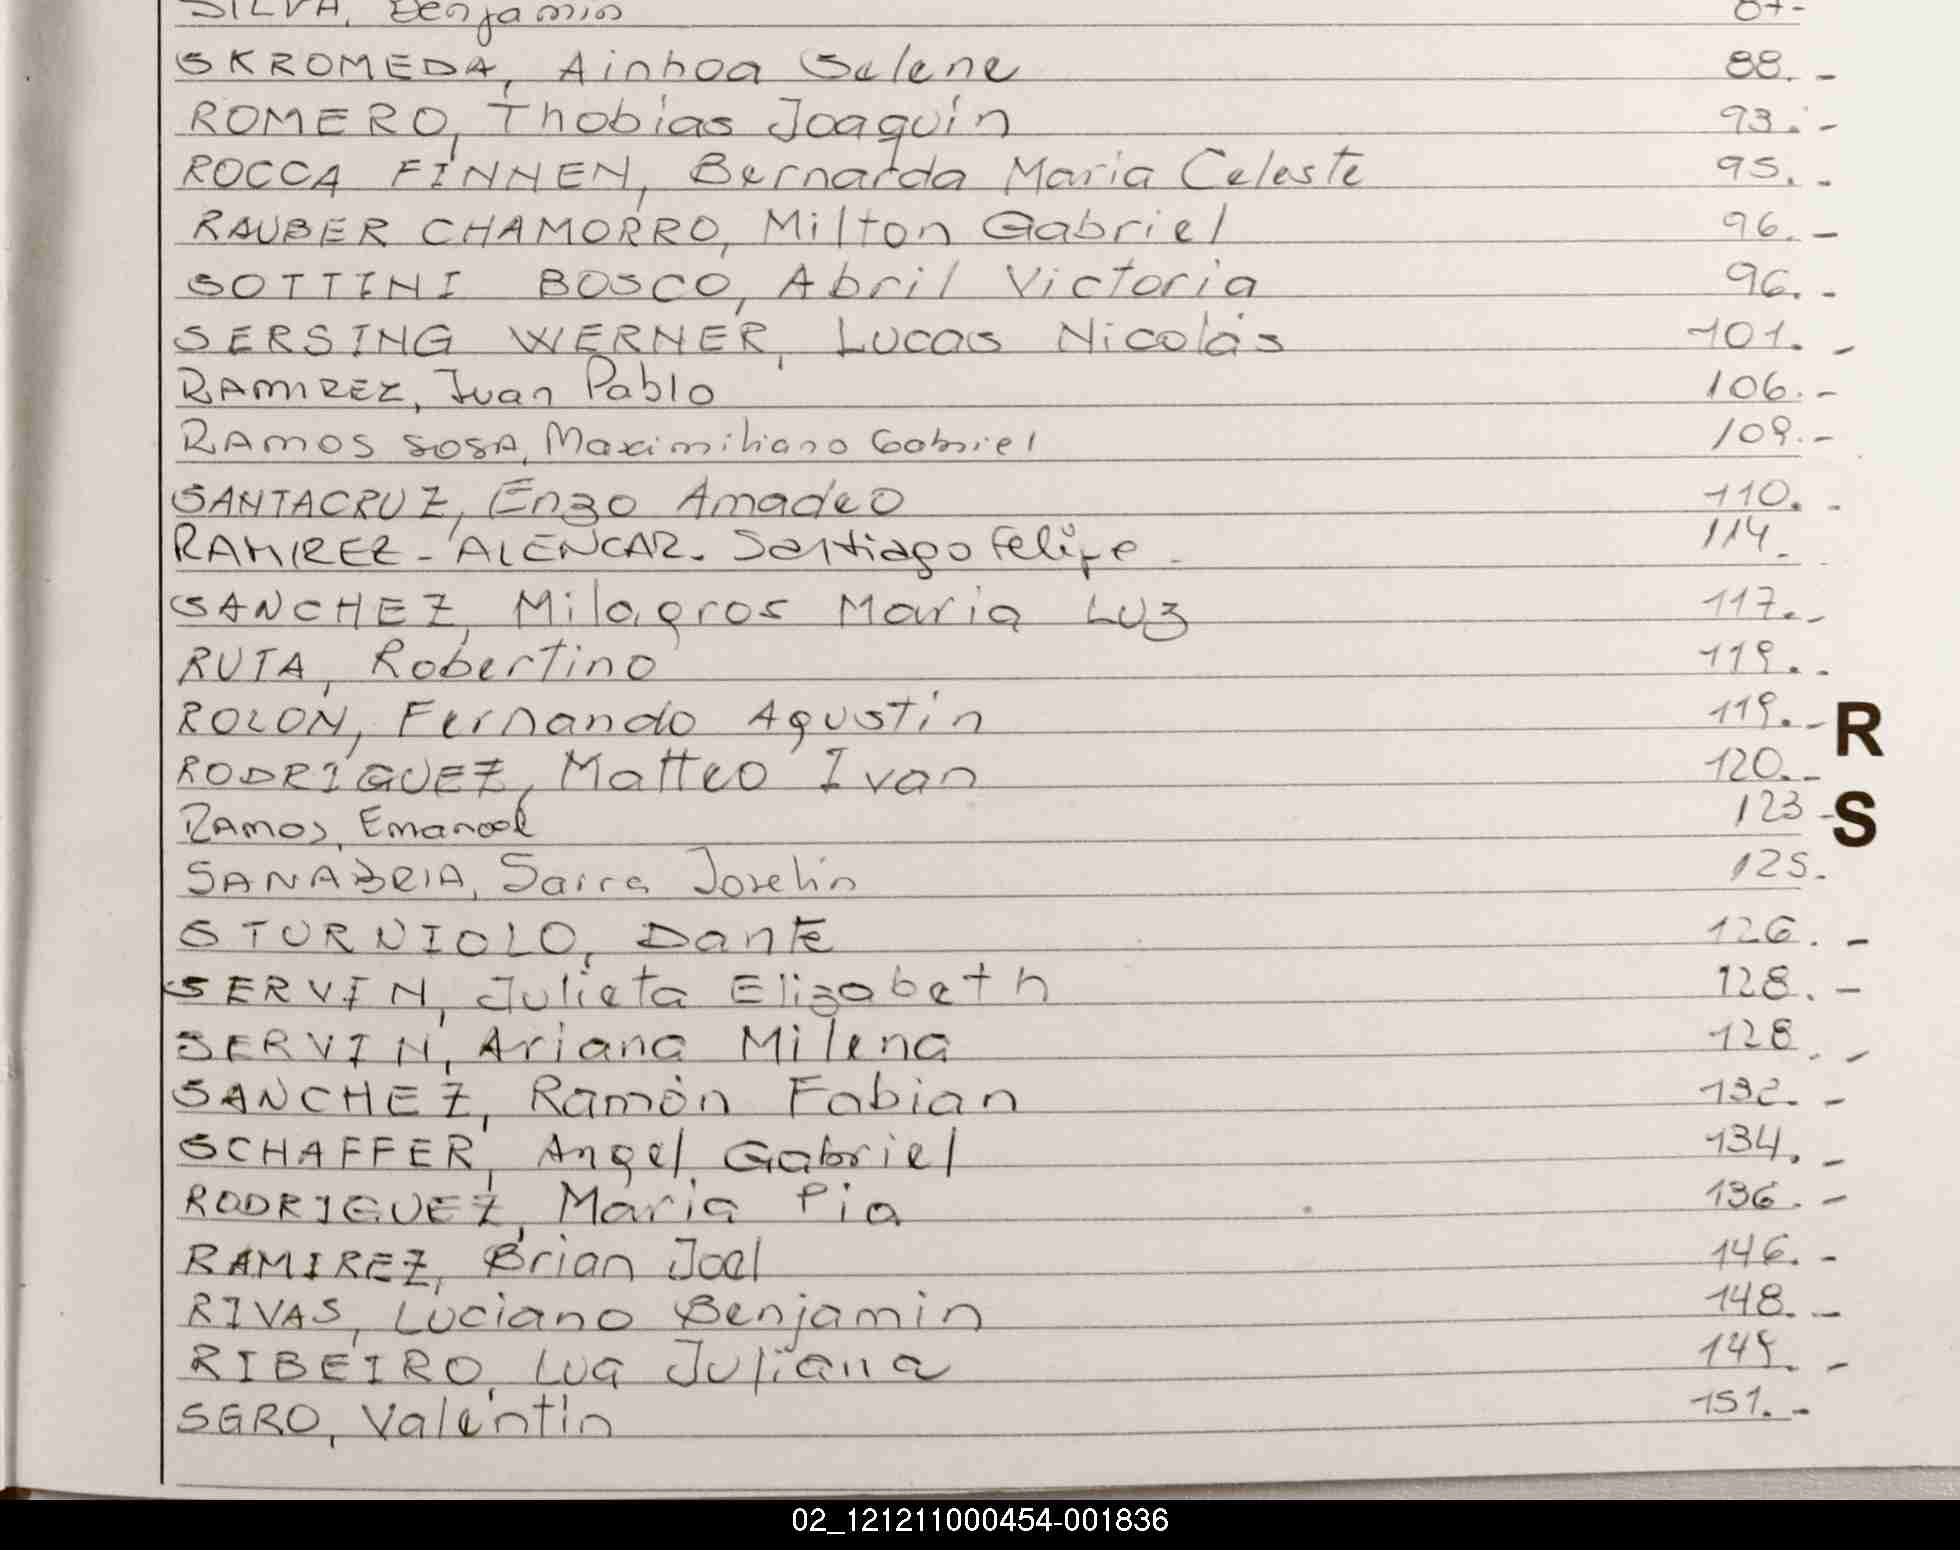 SILVA, Benjamin 87-
SKROMEDA, Ainhoa Selene 88.-
ROMERO, Thobias Joaquin 93.-
ROCCA FINNEN, Bernarda Maria Celeste 95.-
RAUBER CHAMORRO, Milton Gabriel 96.-
SOTTINI BOSCO, Abril Victoria 96.-
SERSING WERNER, Lucas Nicolás 101.-
RAMIREZ, Juan Pablo 106.-
RAMOS SOSA, Maximiliano Gabriel 109.-
SANTACRUZ, Enzo Amadeo 110.-
RAMIREZ - ALENCAR. Santiago Felipe - 114.
SANCHEZ, Milagros Maria Luz 117.-
RUTA, Robertino 119.-
ROLON, Fernando Agustin 119.-
R
RODRIGUEZ, Matteo Ivan 120.-
RAMOS, Emanoel 123-
S
SANABRIA, Saira Joselin 125.
STURNIOLO, Dante 126.-
SERVIN, Julieta Elizabeth 128.-
SERVIN, Ariana Milena 128.-
SANCHEZ, Ramón Fabian 132.-
SCHAFFER, Angel Gabriel 134.-
RODRIGUEZ, Maria Pia 136.-
RAMIREZ, Brian Joel 146.-
RIVAS, Luciano Benjamin 148.-
RIBEIRO, Lua Juliana 149.-
SGRO, Valentin 151.-
02_121211000454-001836